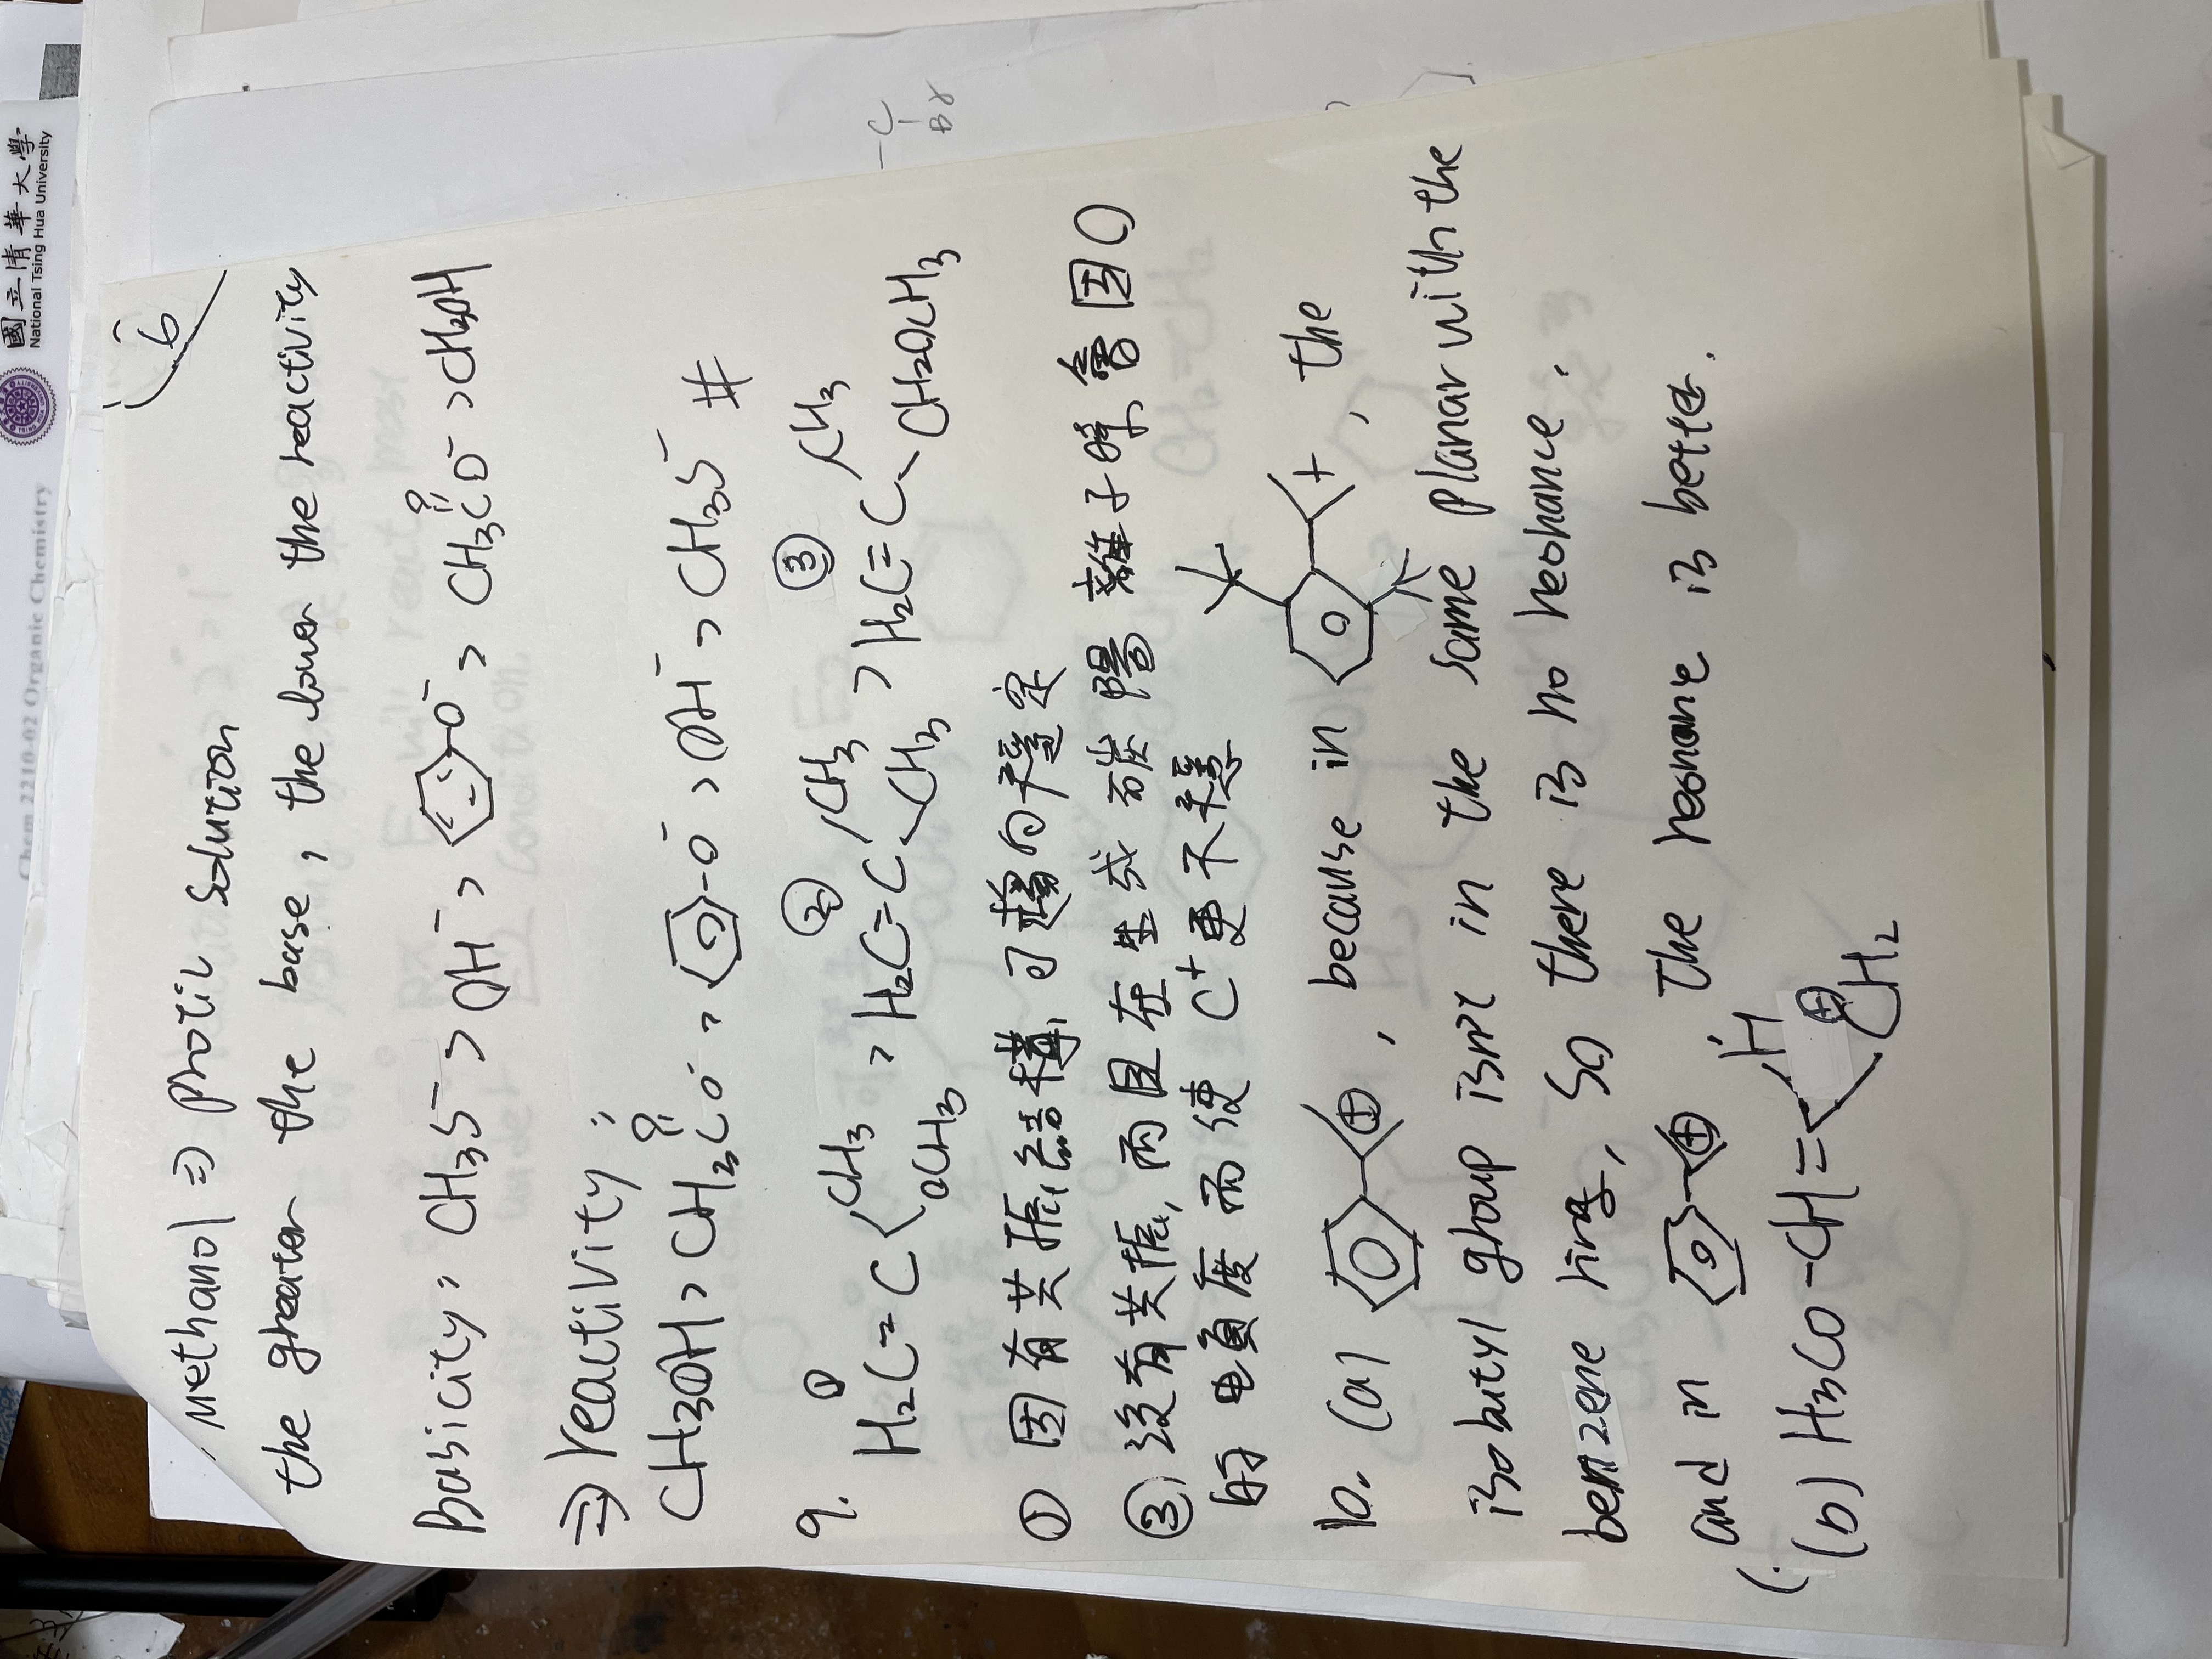 Chem 2210-02 Organic Chemistry
國立清華大學
National Tsing Hua University
6
methanol ⇒ protic solution
the greater the base, the lower the reactivity
Basicity: CH3S⁻ > OH⁻ > O⁻ > CH3CO⁻ > CH3OH
O
⇒ reactivity:
CH3OH > CH3CO⁻ > O⁻ > OH⁻ > CH3S⁻ #
O
9. ① H2C=C CH3 OCH3 > ② H2C=C CH3 CH3 > ③ H2C=C CH3 CH2OCH3
① 因有共振結構, 可趨向穩定
③, 沒有共振, 而且在生成碳陽離子時會因O
的電負度而使 C⁺更不穩
10. (a) ⊕, because in +, the
isobutyl group isn't in the same planar with the
benzene ring, so there is no resonance.
and in ⊕, the resonance is better.
(b) H3CO-CH= H ⊕ CH2
-C
Br